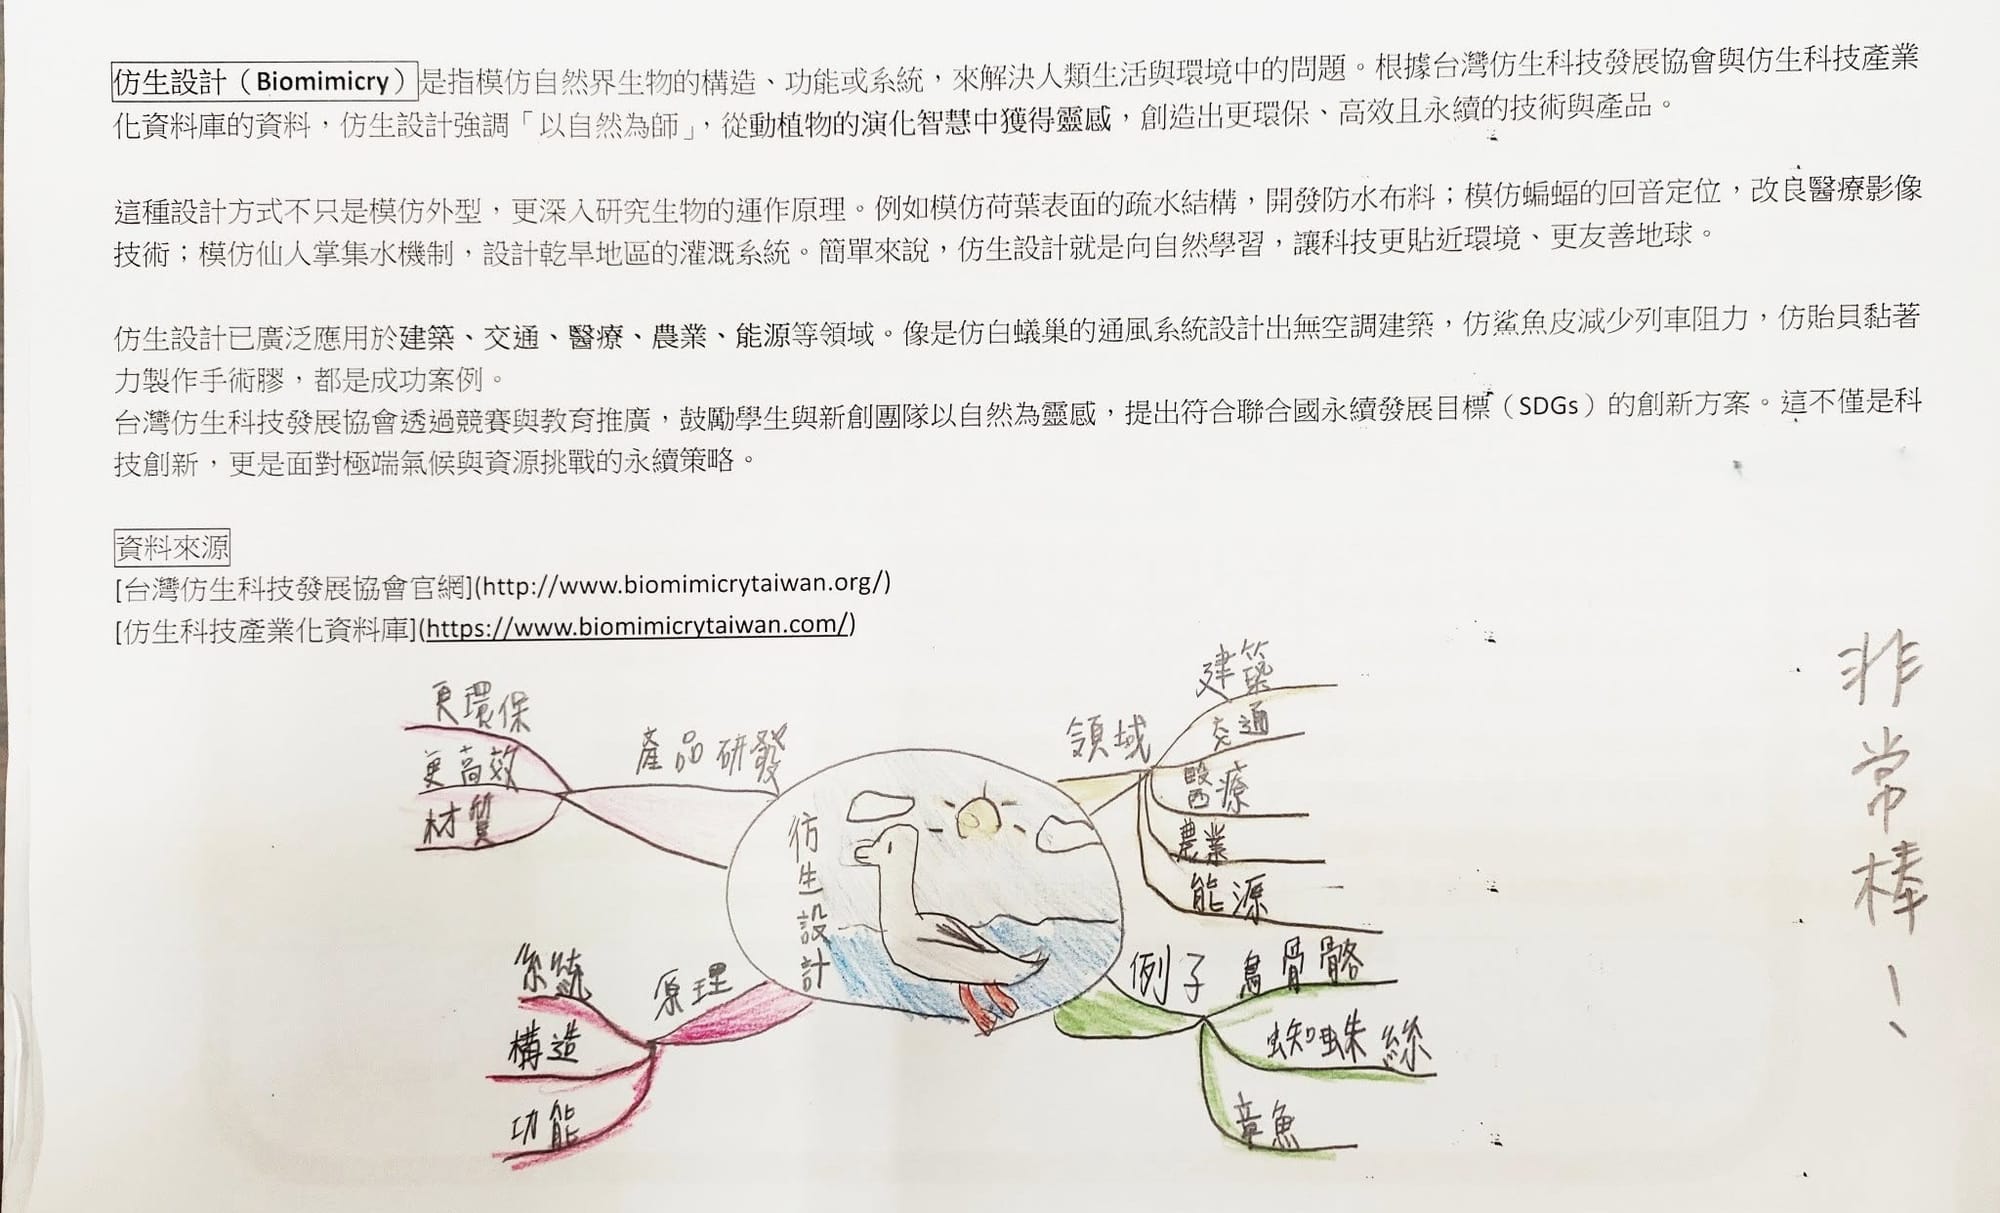 仿生設計（Biomimicry）是指模仿自然界生物的構造、功能或系統，來解決人類生活與環境中的問題。根據台灣仿生科技發展協會與仿生科技產業
化資料庫的資料，仿生設計強調「以自然為師」，從動植物的演化智慧中獲得靈感，創造出更環保、高效且永續的技術與產品。
這種設計方式不只是模仿外型，更深入研究生物的運作原理。例如模仿荷葉表面的疏水結構，開發防水布料；模仿蝙蝠的回音定位，改良醫療影像
技術；模仿仙人掌集水機制，設計乾旱地區的灌溉系統。簡單來說，仿生設計就是向自然學習，讓科技更貼近環境、更友善地球。
仿生設計已廣泛應用於建築、交通、醫療、農業、能源等領域。像是仿白蟻巢的通風系統設計出無空調建築，仿鯊魚皮減少列車阻力，仿貽貝黏著
力製作手術膠，都是成功案例。
台灣仿生科技發展協會透過競賽與教育推廣，鼓勵學生與新創團隊以自然為靈感，提出符合聯合國永續發展目標（SDGs）的創新方案。這不僅是科
技創新，更是面對極端氣候與資源挑戰的永續策略。
資料來源
[台灣仿生科技發展協會官網](http://www.biomimicrytaiwan.org/)
[仿生科技產業化資料庫](https://www.biomimicrytaiwan.com/)
仿生設計
產品研發
更環保
更高效
材質
原理
系統
構造
功能
領域
建築
交通
醫療
農業
能源
例子
鳥骨骼
蜘蛛絲
章魚
非常棒！